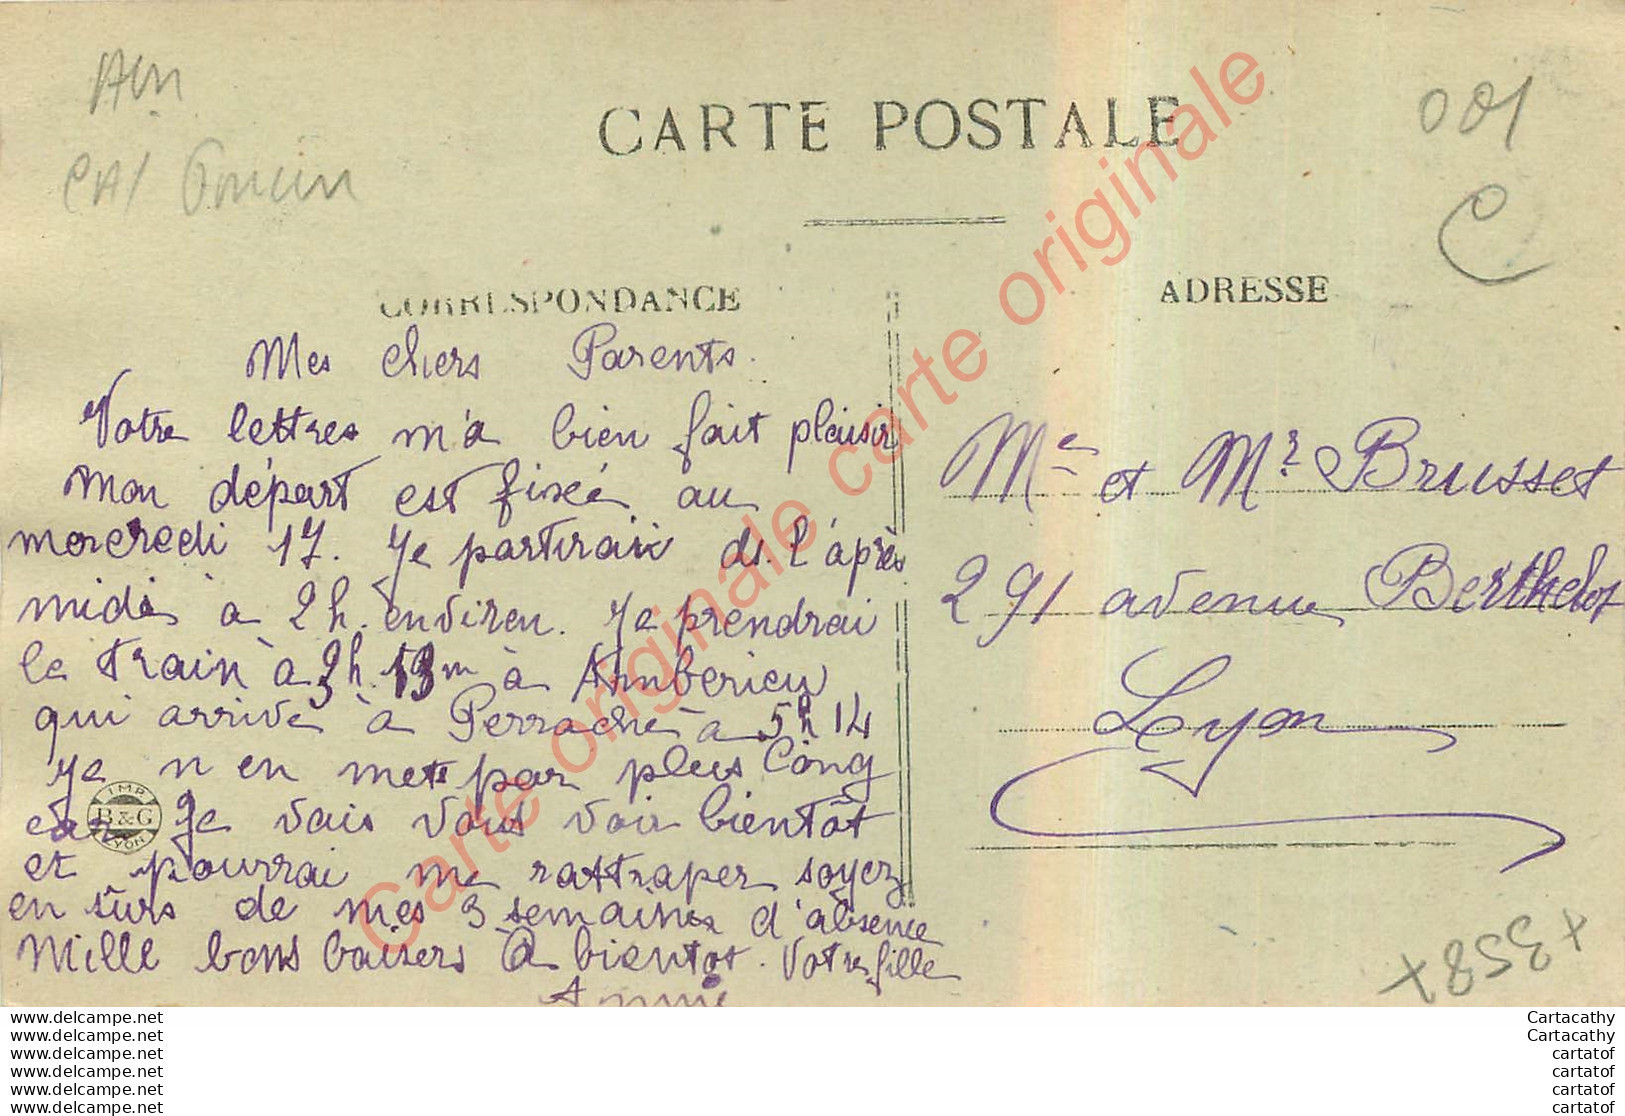 Ain
CARTE POSTALE
001
C
CORRESPONDANCE
ADRESSE
Mes chers Parents.
Votre lettres m'a bien fait plaisir
mon départ est fixée au
mercredi 17. Je partirais ds. l'après
midi à 2h. environ. Je prendrai
le train à 3h. 13m à Ambérieu
qui arrive à Perrache à 5h 14
Je n'en mets par plus long
car Je vais vous voir bientôt
et pourrai me rattraper soyez
en sûrs de mes 3 semaines d'absence
Mille bons baisers A bientot. Votre fille
IMP.
B&G
LYON
Me et Mr Brusset
291 avenue Berthelot
Lyon
+358+
Carte originale carte originale carte originale
www.delcampe.net
www.delcampe.net
www.delcampe.net
www.delcampe.net
www.delcampe.net
www.delcampe.net
Cartacathy
Cartacathy
cartatof
cartatof
cartatof
cartatof